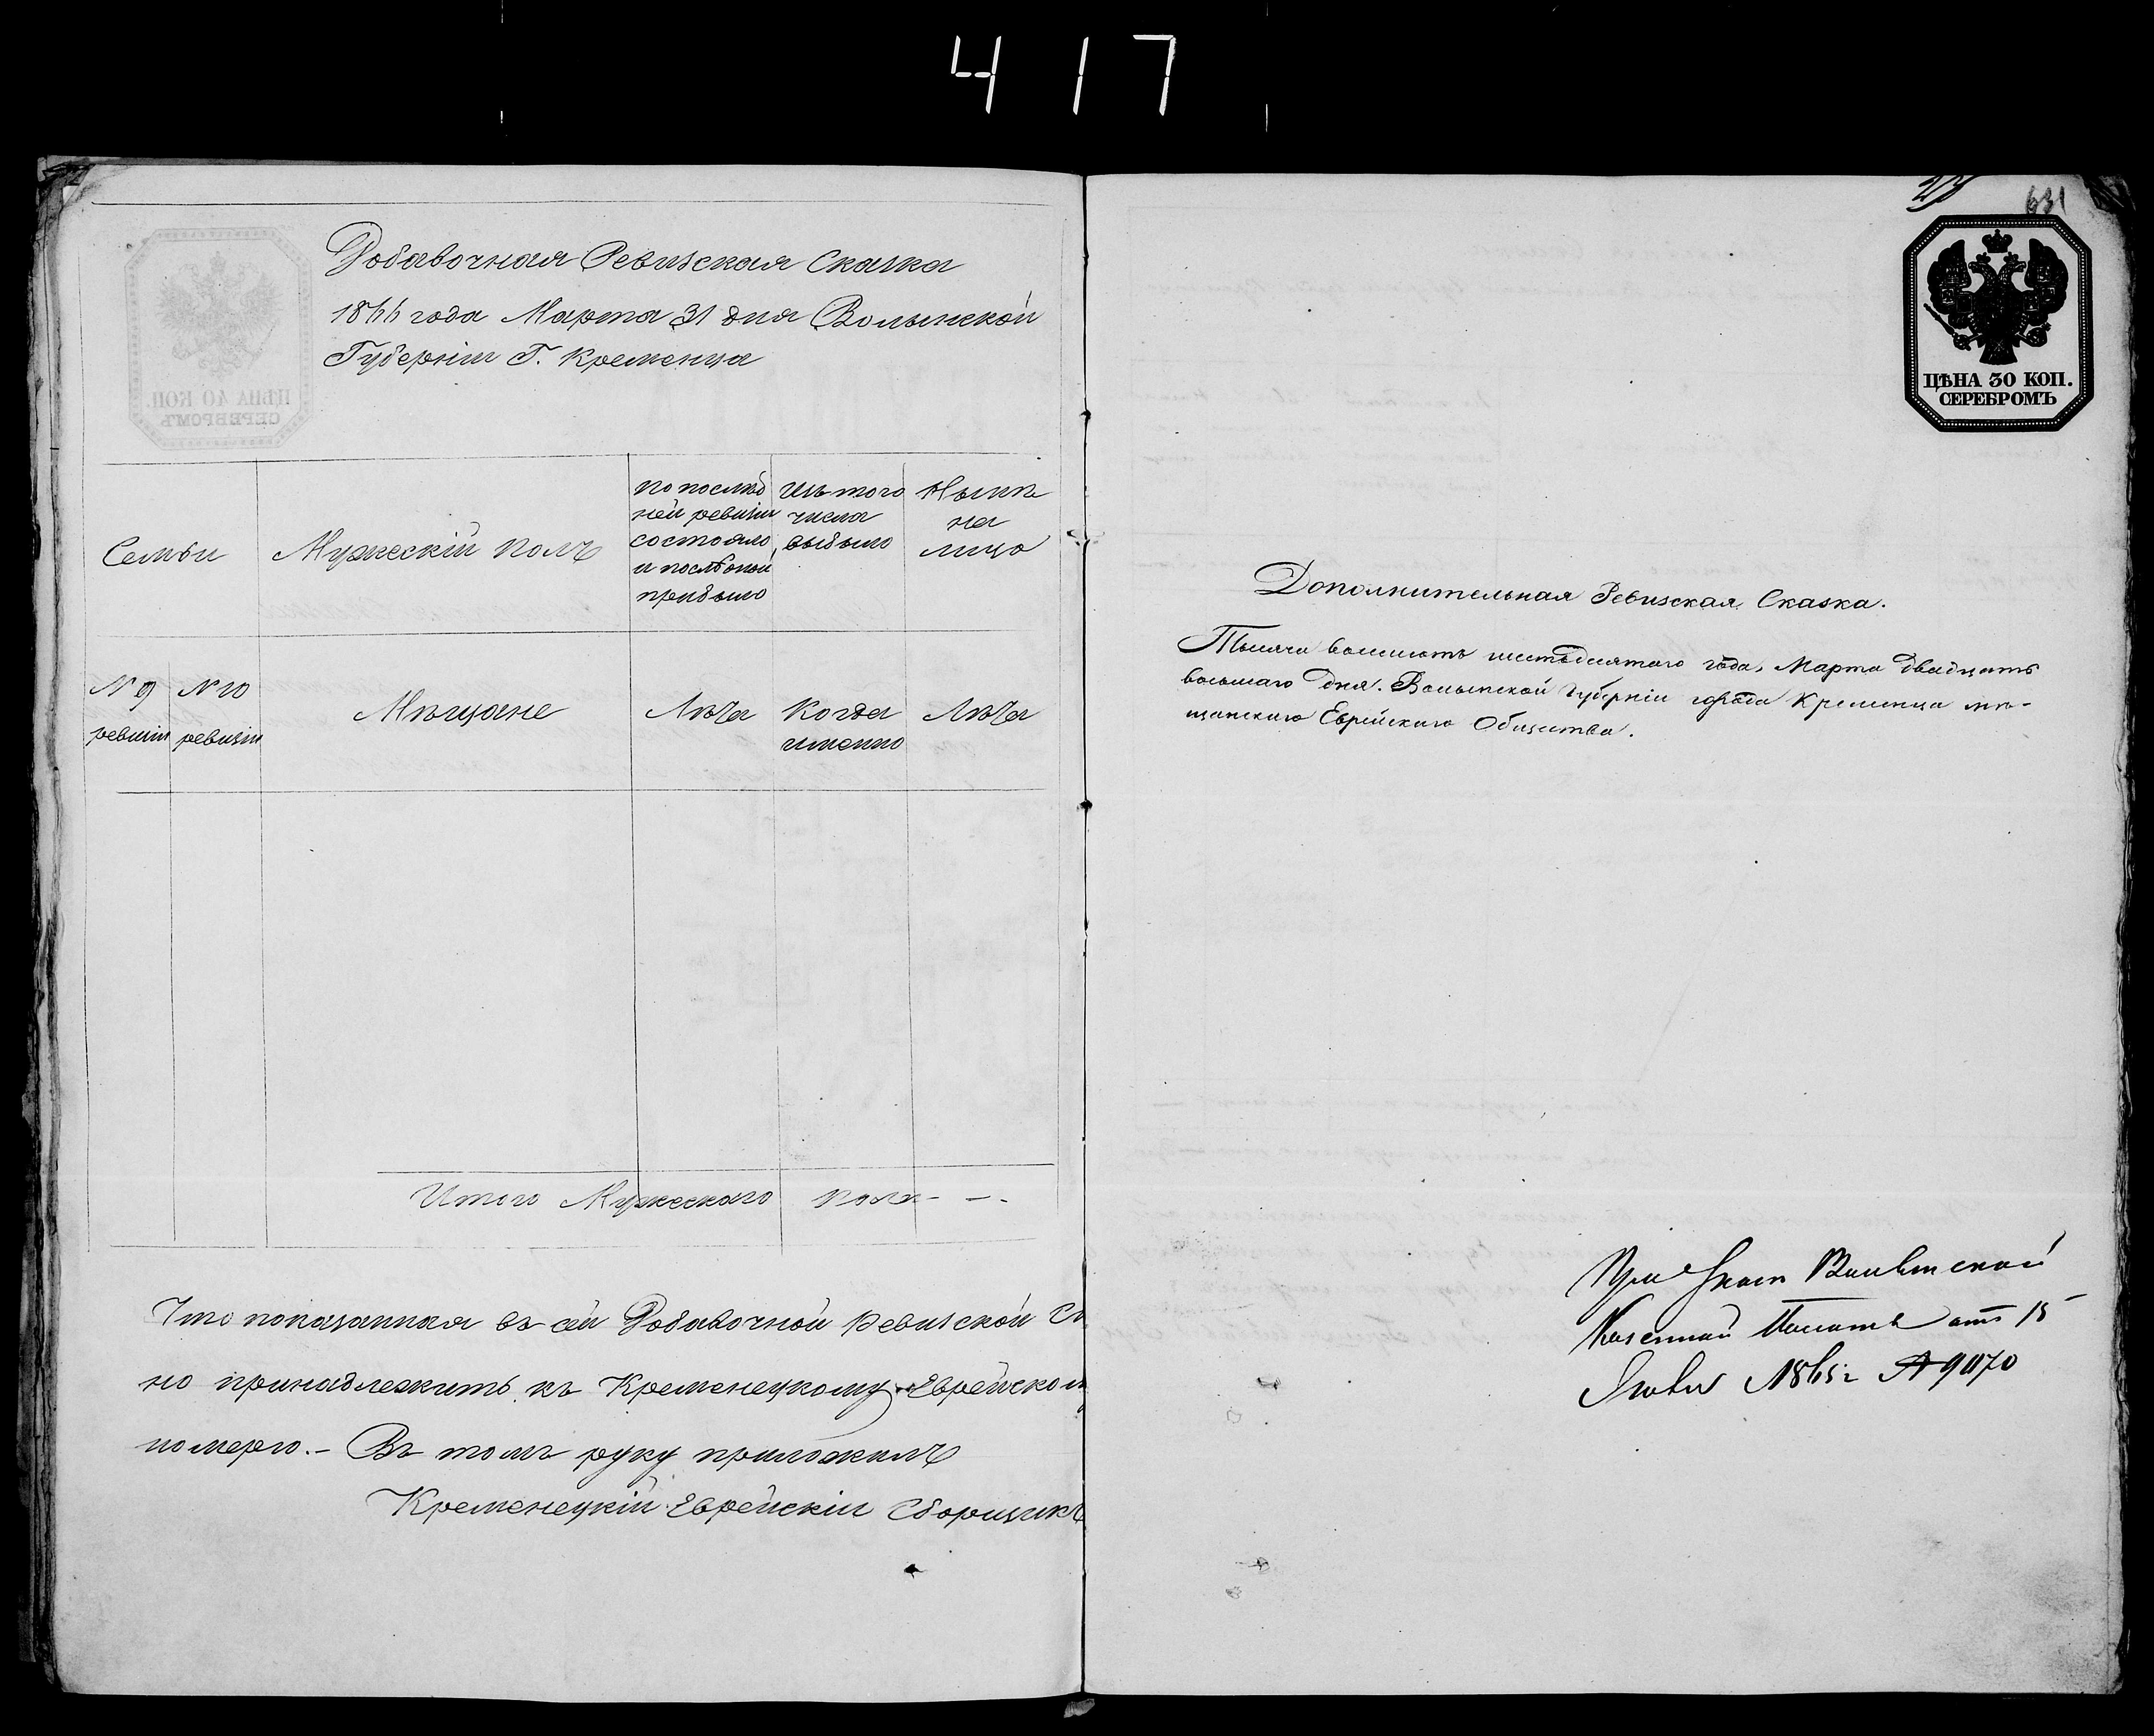 417
Добавочная Ревизская Сказка
1866 года Марта 31 дня Волынской
Губерніи Г. Кременца
ЦѢНА 40 КОП.
СЕРЕБРОМЪ
Семьи
Мужескій полъ
по послѣд
ней ревизіи
состояло
и послѣ оной
прибыло
Изъ того
числа
выбыло
Нынѣ
на
лицо
N 9
ревизіи
N 10
ревизіи
Мѣщане
Лѣта
Когда
именно
Лѣта
Итого Мужескаго пола - -
Что показанная въ сей Добавочной Ревизской
но принадлежитъ къ Кременецкому Еврейском
номеро. - Въ томъ руку приложилъ
Кременецкій Еврейскій Сборщикъ
631
ЦѢНА 30 КОП.
СЕРЕБРОМЪ
Дополнительная Ревизская Сказка.
Тысяча восемсотъ шестдесятаго года, Марта двадцать
восьмаго дня. Волынской Губерніи города Кременца мѣ-
щанскаго Еврейскаго Общества.
Волынской
Казенной Палаты отъ 15